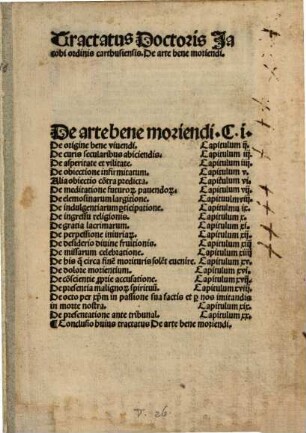 Tractatus Doctoris Ja
cobi ordinis carthusiensis. De arte bene moriendi.
De arte bene moriendi. C. i.
De origine bene viuendi. Capitulum ij.
De curis secularibus abiiciendis. Capitulum iij.
De asperitate et vilitate. Capitulum iiij.
De obiectione infirmitatum. Capitulum v.
Alia obiectio cōtra predicta. Capitulum vi.
De meditatione futuroꝝ pauendoꝝ. Capitulum vij.
De elemosinarum largitione. Capitulum viij.
De indulgentiarum pticipatione. Capitulum ix.
De ingressu religionis. Capitulum x.
De gratia lacrimarum. Capitulum xi.
De perpessione iniuriaꝝ. Capitulum xij.
De desiderio diuine fruitionis. Capitulum xiij
De missarum celebratione. Capitulum xiiij
De his q̄ circa finē morituris solēt euenire. Capitulum xv.
De dolore morientium. Capitulum xvi.
De cōscientie ꝓprie accusatione. Capitulum xvij.
De presentia malignoꝝ spirituū. Capitulum xviij.
De octo per xp̄m in passione sua factis et p nos imitandis
in morte nostra. Capitulum xix.
De presentatione ante tribunal. Capitulum xx.
¶ Conclusio huius tractatus De arte bene moriendi.